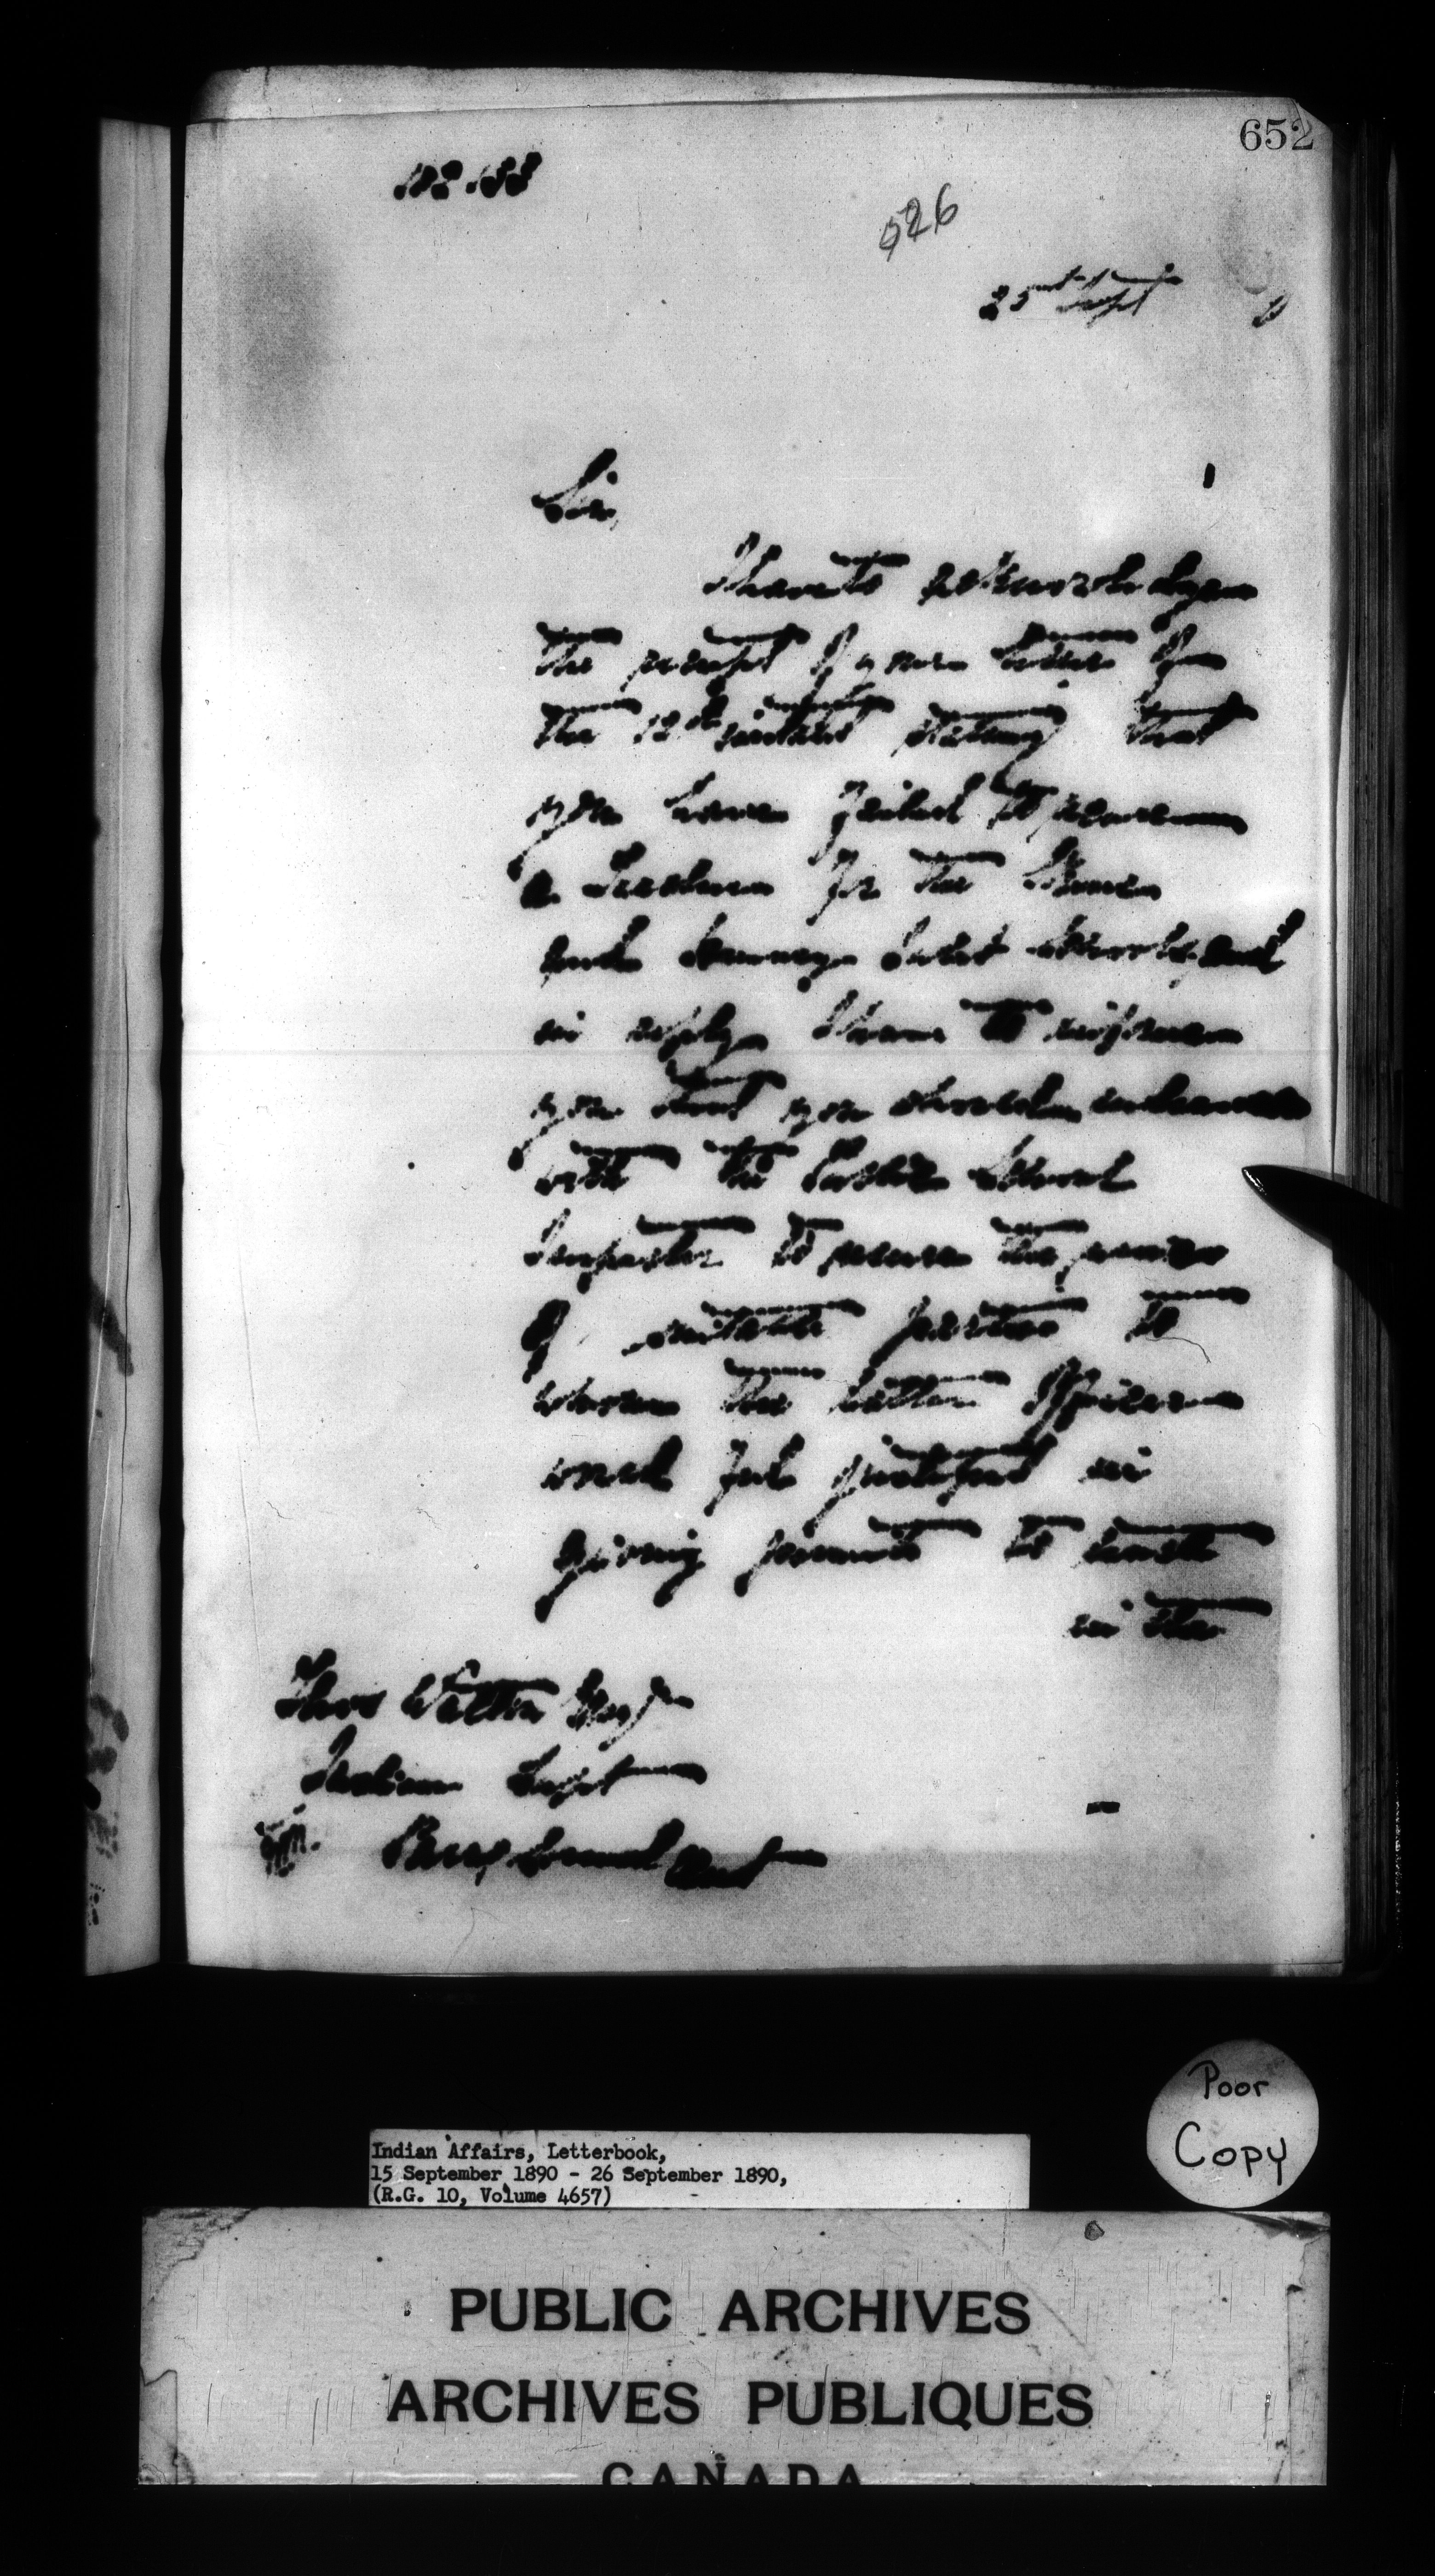 652
526
25th Sept 0
Sir,
I have to acknowledge
the receipt of your letter of
the 12th instant stating that
you have failed to secure
a Teacher for the
and Schools, and
in reply I have to inform
you that you should endeavour
with the Public School
Inspector to secure the names
of suitable parties to
whom the latter Officer
would feel justified in
giving permits to teach
in the
Thos Walton Esqr
Indian Supt
Parry Sound Ont
Poor
Copy
Indian Affairs, Letterbook,
15 September 1890 - 26 September 1890,
(R.G. 10, Volume 4657)
PUBLIC ARCHIVES
ARCHIVES PUBLIQUES
CANADA